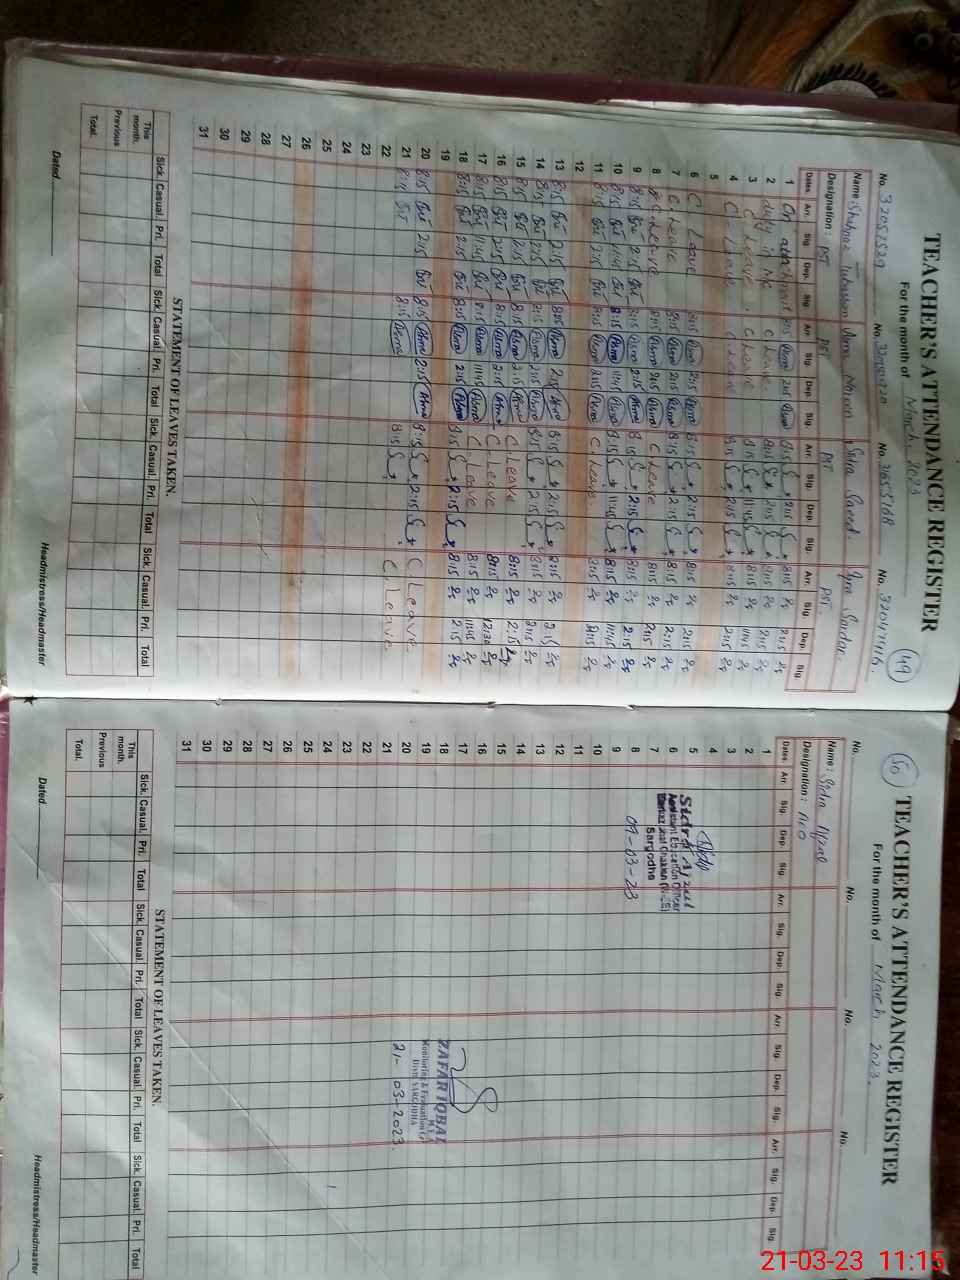 TEACHER'S ATTENDANCE REGISTER
49
For the month of March, 2023
No. 32057529 No. No. 31655168 No. 320471416
Name: Shahnaz Asma Noreen Sidra Saeed. Iqra Sardar.
Designation: PST PST PST PST.
Dates Arr. Sig. Dep. Sig. Arr. Sig. Dep. Sig. Arr. Sig. Dep. Sig. Arr. Sig. Dep. Sig.
1 On 8:15 Asma 2:15 Asma 8:15 2:15 8:15 2:15
2 duty in C Leave. 8:15 2:15 8:15 2:15
3 C Leave. C Leave 8:15 11:45 8:15 11:45
4 C Leave C Leave 8:15 2:15 8:15 2:15
5
6 C Leave 8:15 Asma 2:15 Asma 8:15 2:15 8:15 2:15
7 C Leave 8:15 Asma 2:15 Asma 8:15 2:15 8:15 2:15
8 C Leave 8:15 Asma 2:15 Asma C Leave 8:15 2:15
9 8:15 2:15 8:15 Asma 2:15 Asma 8:15 2:15 8:15 2:15
10 8:15 11:45 8:15 Asma 11:45 Asma 8:15 11:45 8:15 11:45
11 8:15 2:15 8:15 Asma 2:15 Asma C Leave. 8:15 2:15
12
13 8:15 2:15 8:15 Asma 2:15 Asma 8:15 2:15 8:15 2:15
14 8:15 2:15 8:15 Asma 2:15 Asma 8:15 2:15 8:15 2:15
15 8:15 2:15 8:15 Asma 2:15 Asma C Leave 8:15 2:15
16 8:15 2:15 8:15 Asma 2:15 Asma C Leave 8:15 12:30
17 8:15 11:45 8:15 Asma 11:45 Asma C Leave 8:15 11:45
18 8:15 2:15 8:15 Asma 2:15 Asma 8:15 2:15 8:15 2:15
19
20 8:15 2:15 8:15 Asma 2:15 Asma 8:15 2:15 C Leave
21 8:15 8:15 Asma 8:15 C. Leave
22
23
24
25
26
27
28
29
30
31
STATEMENT OF LEAVES TAKEN.
Sick. Casual. Pri. Total Sick. Casual. Pri. Total Sick. Casual. Pri. Total Sick. Casual. Pri. Total
This month.
Previous
Total.
Dated Headmistress/Headmaster
50
TEACHER'S ATTENDANCE REGISTER
For the month of March 2023.
No. No. No. No.
Name: Sidra Afzal
Designation: AEO
Dates Arr. Sig. Dep. Sig. Arr. Sig. Dep. Sig. Arr. Sig. Dep. Sig. Arr. Sig. Dep. Sig.
1
2
3
4
5
6
7
8
9
10
11
12
13
14
15
16
17
18
19
20
21
22
23
24
25
26
27
28
29
30
31
Sidra Afzal
Assistant Education Officer
Sargodha
09-03-23
ZAFAR IQBAL
Monitoring & Evaluation
Distt: SARGODHA
21-03-2023.
STATEMENT OF LEAVES TAKEN.
Sick. Casual. Pri. Total Sick. Casual. Pri. Total Sick. Casual. Pri. Total Sick. Casual. Pri. Total
This month.
Previous
Total.
Dated Headmistress/Headmaster
21-03-23 11:15